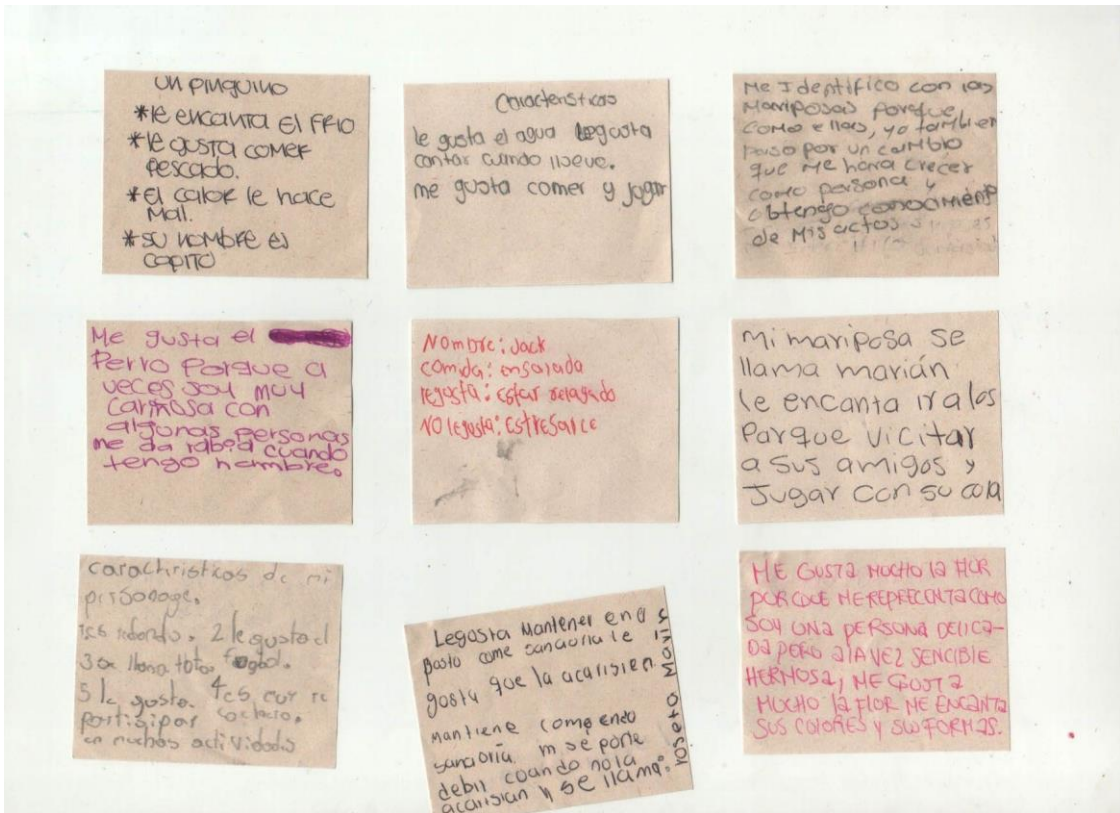 UN PINGUINO
*le encanta el FRIO
*le gusta comer
pescado.
*el calor le hace
Mal.
*su nombre es
copito
Caracteristicas
le gusta el agua le gusta
cantar cuando llueve.
me gusta comer y jugar
Me Identifico con las
Mariposas porque,
como ellas, yo tambien
paso por un cambio
que me hara crecer
como persona y
obtengo
de mis actos
Me gusta el
Perro Porque a
veces soy muy
cariñosa con
algunas personas
me da rabia cuando
tengo hambre.
Nombre: Jack
comida: ensalada
legusta: Estar relagado
NO legusta: Estresarce
Mi mariposa se
llama marián
le encanta ir a los
Parque vicitar
a sus amigos y
Jugar con su cola
de mi
personage.
redondo. 2 le gusta el
3 se llama
5 le gusta. 4 es
partisipar
en muchas actividades
Legusta Mantener en el
pasto come sanaoria le
gusta que la acarisien.
mantiene comiendo
sanaoria se pone
debil cuando no la
acarisian y se llama.
ME GUSTA MUCHO LA FLOR
PORQUE ME REPRECENTA COMO
SOY UNA PERSONA DELICA-
DA PERO A LA VEZ SENCIBLE
HERMOSA, ME GUSTA
MUCHO LA FLOR ME ENCANTA
SUS COLORES Y SUS FORMAS.